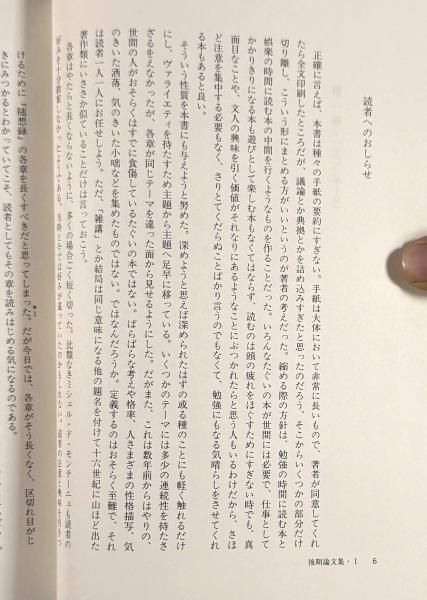 読者へのおしらせ
正確に言えば、本書は種々の手紙の要約にすぎない。手紙は大体において非常に長いもので、著者が同意してくれ
たら全文印刷したところだが、議論とか典拠とかを詰め込みすぎたと思ったのだろう、そこからいくつかの部分だけ
切り離し、こういう形にまとめる方がいいというのが著者の考えだった。縮める際の方針は、勉強の時間に読む本と
娯楽の時間に読む本の中間を行くようなものを作ることだった。いろんなたぐいの本が世間には必要で、仕事として
かかりきりになる本も遊びとして楽しむ本もなくてはならず、読むのは頭の疲れをほぐすためにすぎない時でも、真
面目なことや、文人の興味を引く価値がそれなりにあるようなことにぶつかれたらと思う人もいるわけだから、さほ
ど注意を集中する必要もなく、さりとてくだらぬことばかり言うのでもなくて、勉強にもなる気晴らしをさせてくれ
る本もあると良い。
そういう性質を本書にも与えようと努めた。深めようと思えば深められたはずの或る種のことにも軽く触れるだけ
にし、ヴァライエティを持たすため主題から主題へ足早に移っている。いくつかのテーマには多少の連続性を持たさ
ざるをえなかったが、各章が同じテーマを違った面から見せるようにした。だがまた、これは数年前からはやりの、
世間の人がおそらくはすでに食傷しているたぐいの本ではない。ばらばらな考えや格率、人さまざまの性格描写、気
のきいた洒落、気のきいた小咄などを集めたものではない。ではなんだろうか。定義するのはおそらく至難で、それ
は読者一人一人にお任せしよう。ただ、「雑講」とか結局は同じ意味になる他の題名を付けて十六世紀に山ほど出た
著作類にいささか似ていることだけは言っておこう。
各章はやたらと長くならないように、多くの場合ごく短く切った。比類なきミシェル・ド・モンテーニュも読者の
けるために『随想録』の各章を長くすべきだと思ってしまった。だが今日では、各章がそう長くなく、区切れ目がじ
きにみつかるとわかっていてこそ、読者としてもその章を読みはじめる気になるのである。
後期論文集・I 6